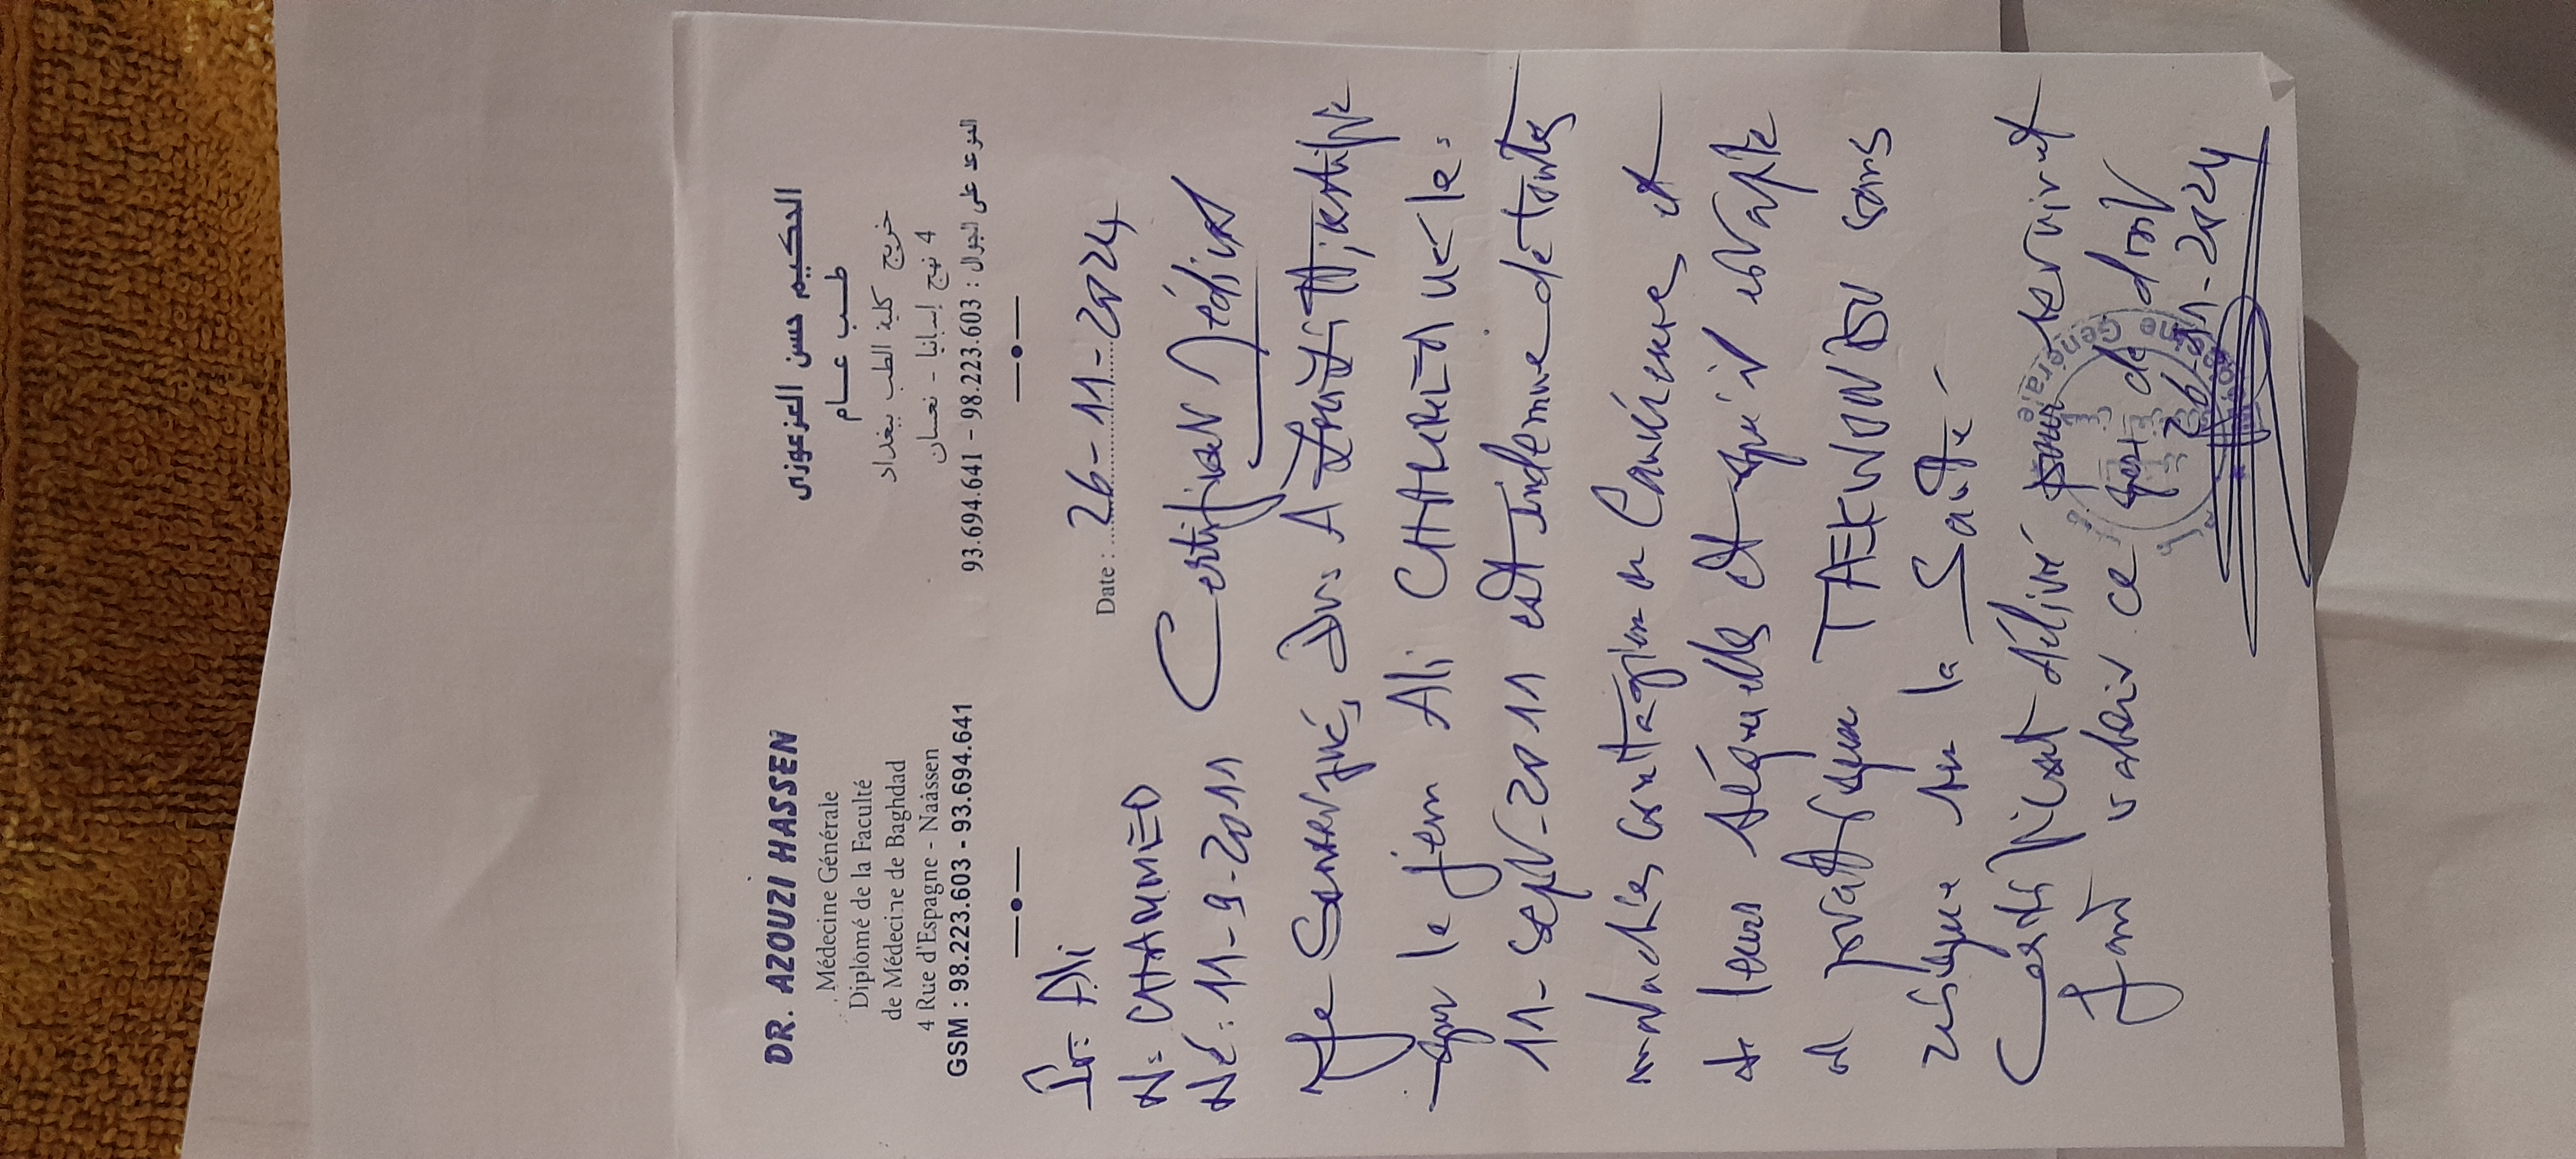 DR. AZOUZI HASSEN
Médecine Générale
Diplomé de la Faculté
de Médecine de Baghdad
4 Rue d'Espagne - Naâssen
GSM : 98.223.603 - 93.694.641
الحكيم حسن العزعوزي
طب عام
خريج كلية الطب ببغداد
4 نهج إسبانيا - نعسان
الموعد على الجوال : 98.223.603 - 93.694.641
Date : 26-11-2024
Pr: Ali
N: CHAMMED
Né: 11-9-2011
Certificat Médical
Je Soussigné, Dr: certifie
que le jeun Ali né le:
11-Sept-2011 est indemne de toutes
maladies contagieuse ou Cancéreuse et
de leurs séquelles et qu'il est apte
à pratiquer TAEKWONDO sans
risque sur la Santé
Certificat délivré pour servir et
faire valoir ce que de droit
26-11-2024
Médecine Générale